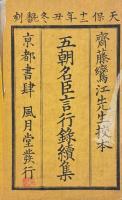 天保十年丑冬新刻
齋藤鸞江先生校本
五朝名臣言行錄續集
京都書肆 風月堂發行